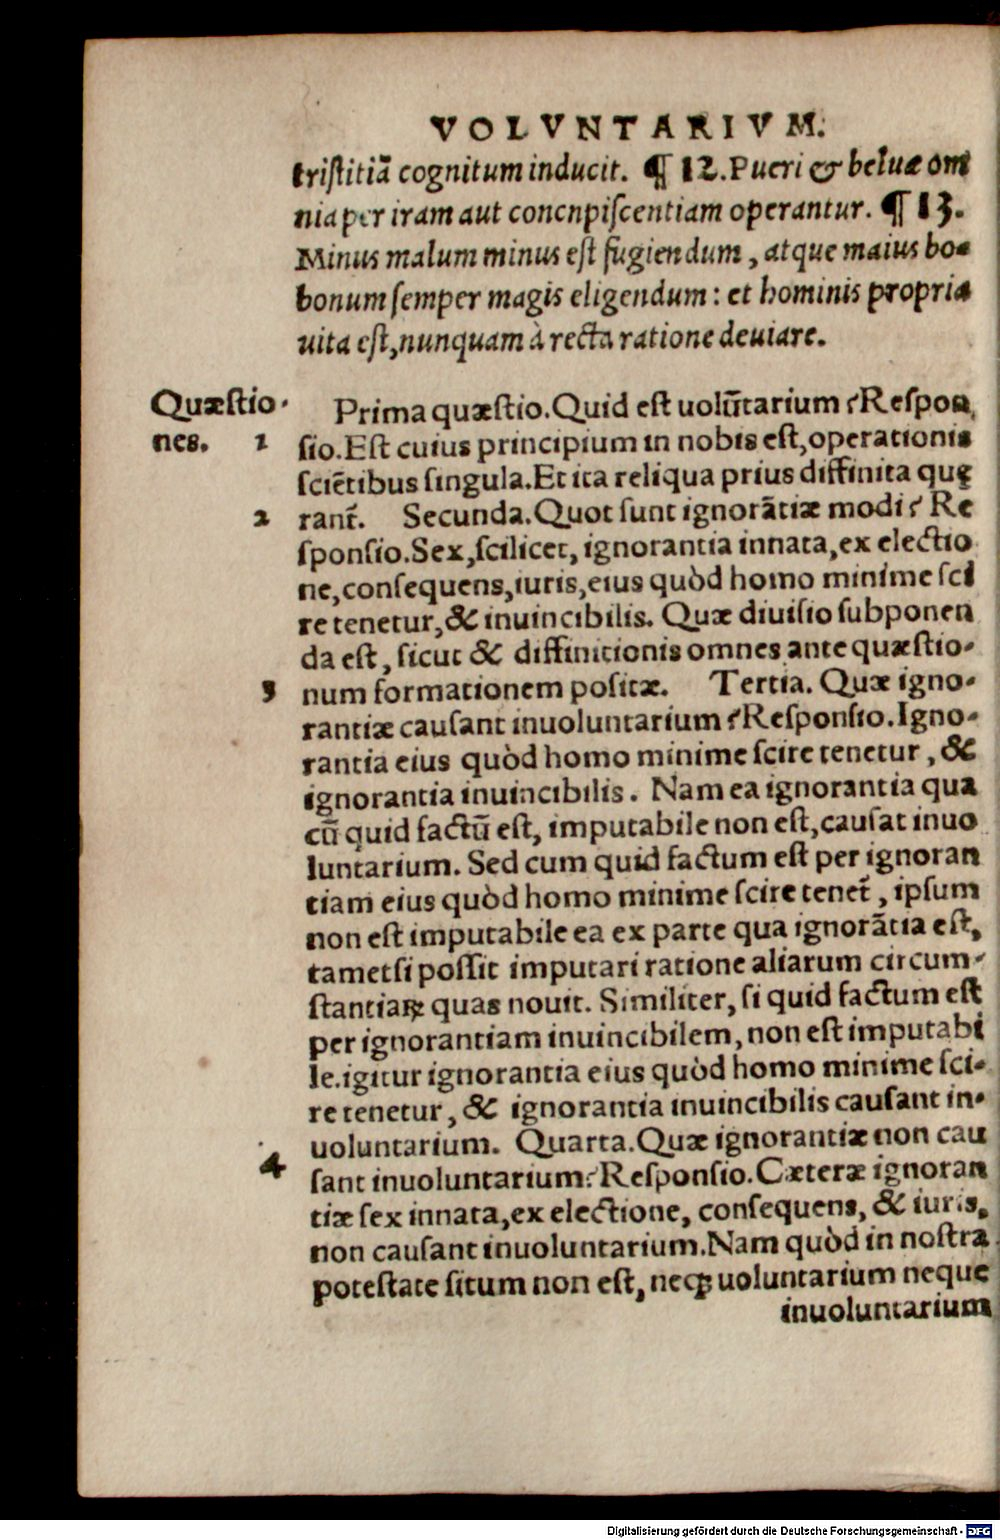 VOLVNTARIVM.
triſtitiā cognitum inducit. ¶ 12. Pueri & beluæ om
nia per iram aut concnpiſcentiam operantur. ¶ 13.
Minus malum minus eſt fugiendum, atque maius bo-
bonum ſemper magis eligendum: et hominis propria
uita eſt, nunquam à recta ratione deuiare.
Quæſtio-
nes.
Prima quæſtio. Quid eſt uolūtarium? Reſpon
1 ſio. Eſt cuius principium in nobis eſt, operationis
ſciētibus ſingula. Et ita reliqua prius diffinita quę
2 rant̃. Secunda. Quot ſunt ignorātiæ modi? Re
ſponſio. Sex, ſcilicet, ignorantia innata, ex electio
ne, conſequens, iuris, eius quòd homo minime ſci
re tenetur, & inuincibilis. Quæ diuiſio ſubponen
da eſt, ſicut & diffinitionis omnes ante quæſtio-
3 num formationem poſitæ. Tertia. Quæ igno-
rantiæ cauſant inuoluntarium? Reſponſio. Igno-
rantia eius quòd homo minime ſcire tenetur, &
ignorantia inuincibilis. Nam ea ignorantia qua
cū quid factū eſt, imputabile non eſt, cauſat inuo
luntarium. Sed cum quid factum eſt per ignoran
tiam eius quòd homo minime ſcire tenet̃, ipſum
non eſt imputabile ea ex parte qua ignorātia eſt,
tametſi poſſit imputari ratione aliarum circum-
ſtantiaꝝ quas nouit. Similiter, ſi quid factum eſt
per ignorantiam inuincibilem, non eſt imputabi
le. igitur ignorantia eius quòd homo minime ſci-
re tenetur, & ignorantia inuincibilis cauſant in-
uoluntarium. Quarta. Quæ ignorantiæ non cau
4 ſant inuoluntarium? Reſponſio. Cæteræ ignoran
tiæ ſex innata, ex electione, conſequens, & iuris,
non cauſant inuoluntarium. Nam quòd in noſtra
poteſtate ſitum non eſt, neqꝫ uoluntarium neque
inuoluntarium
Digitalisierung gefördert durch die Deutsche Forschungsgemeinschaft - DFG